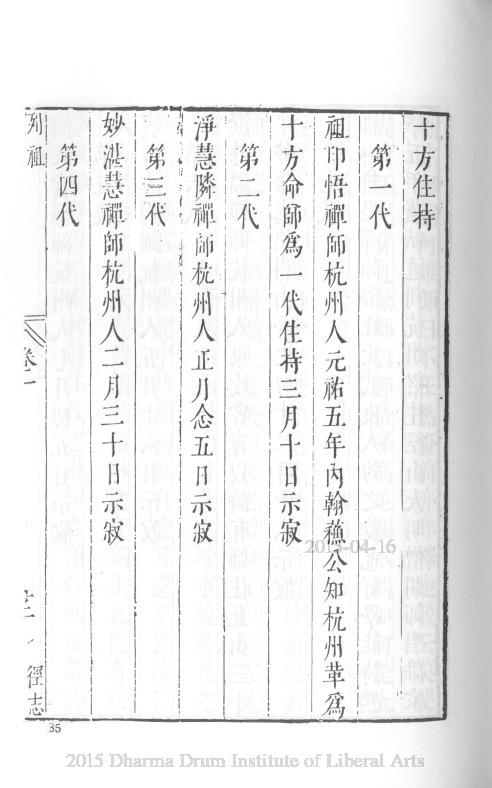 十方住持
第一代
祖印悟禪師杭州人元祐五年內翰蘓公知杭州革爲
十方命師爲一代住持三月十日示寂
第二代
淨慧隣禪師杭州人正月念五日示寂
第三代
妙湛慧禪師杭州人二月三十日示寂
第四代
列祖
卷一
徑志
35
2015-04-16
2015 Dharma Drum Institute of Liberal Arts